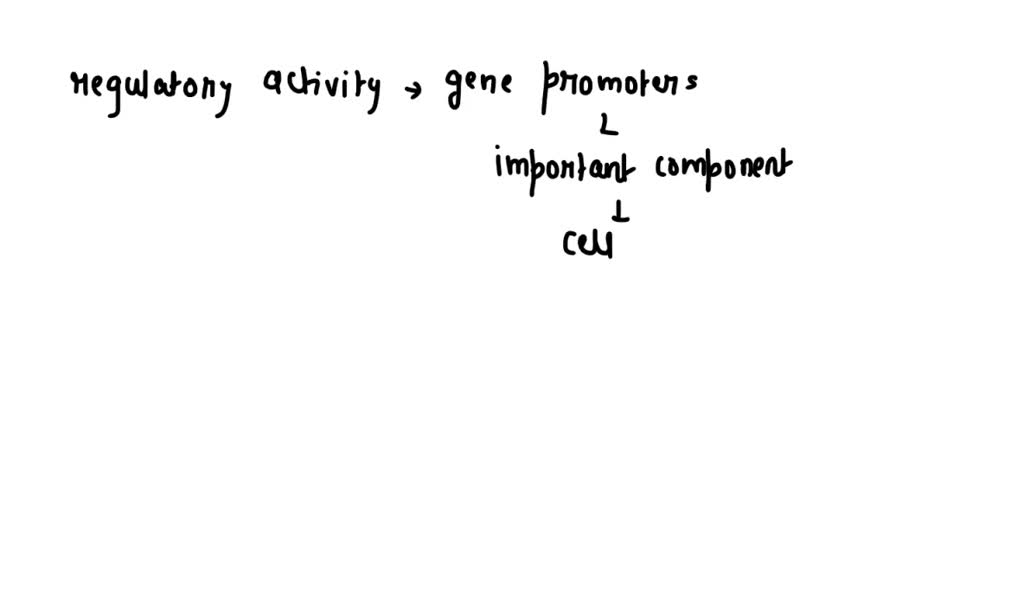 regulatory activity → gene promoters
important component
cell